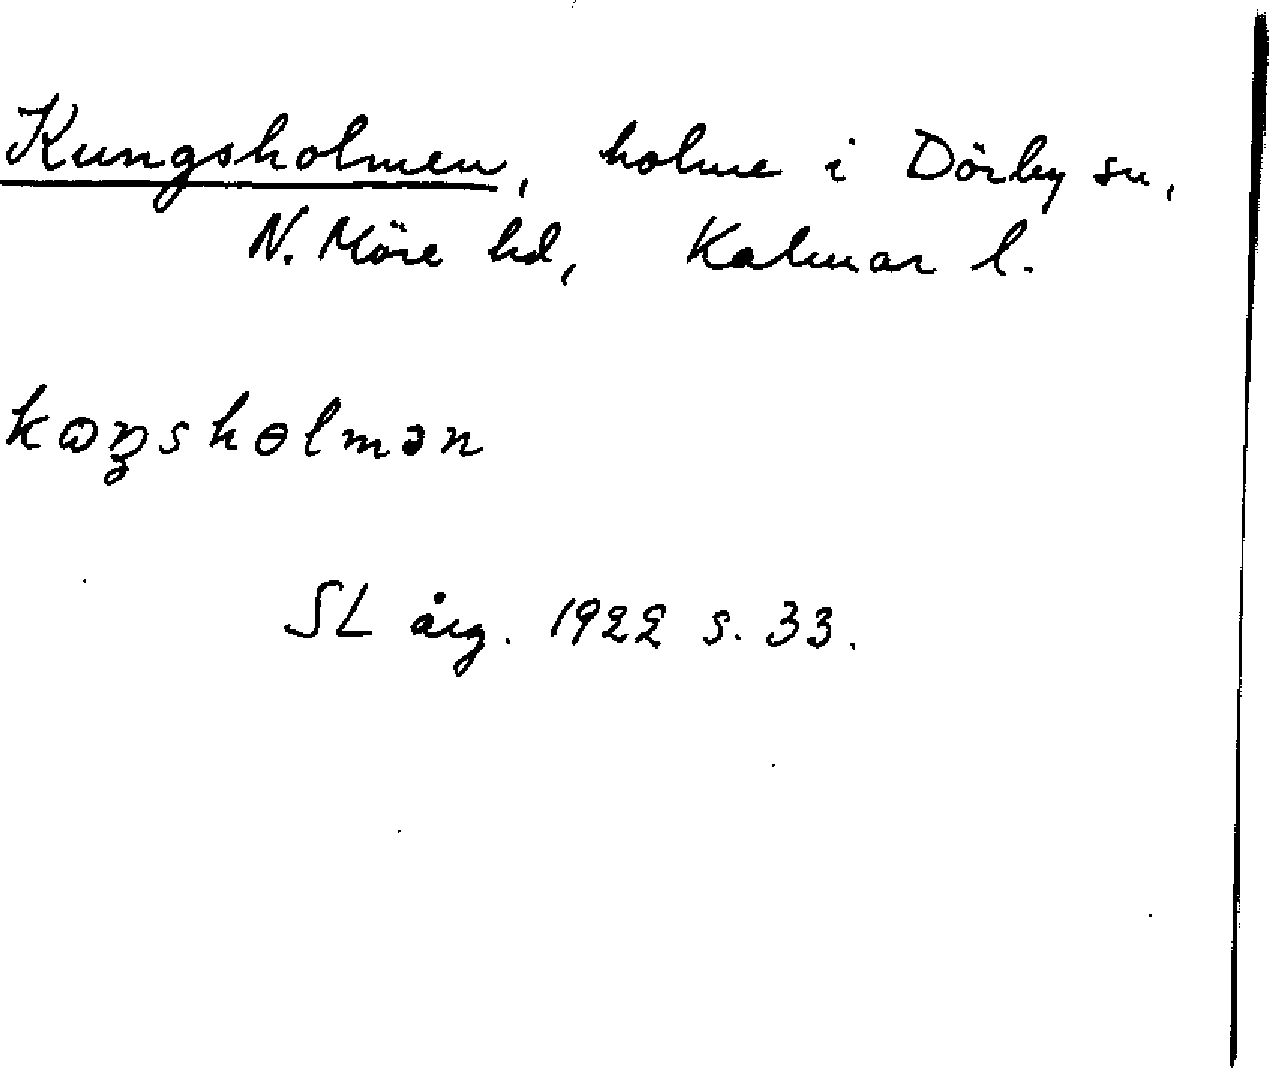 Kungsholmen, holme i Dörby sn,
N. Möre hd, Kalmar l.
kɷŋshɵlmən
SL årg. 1922 s. 33.